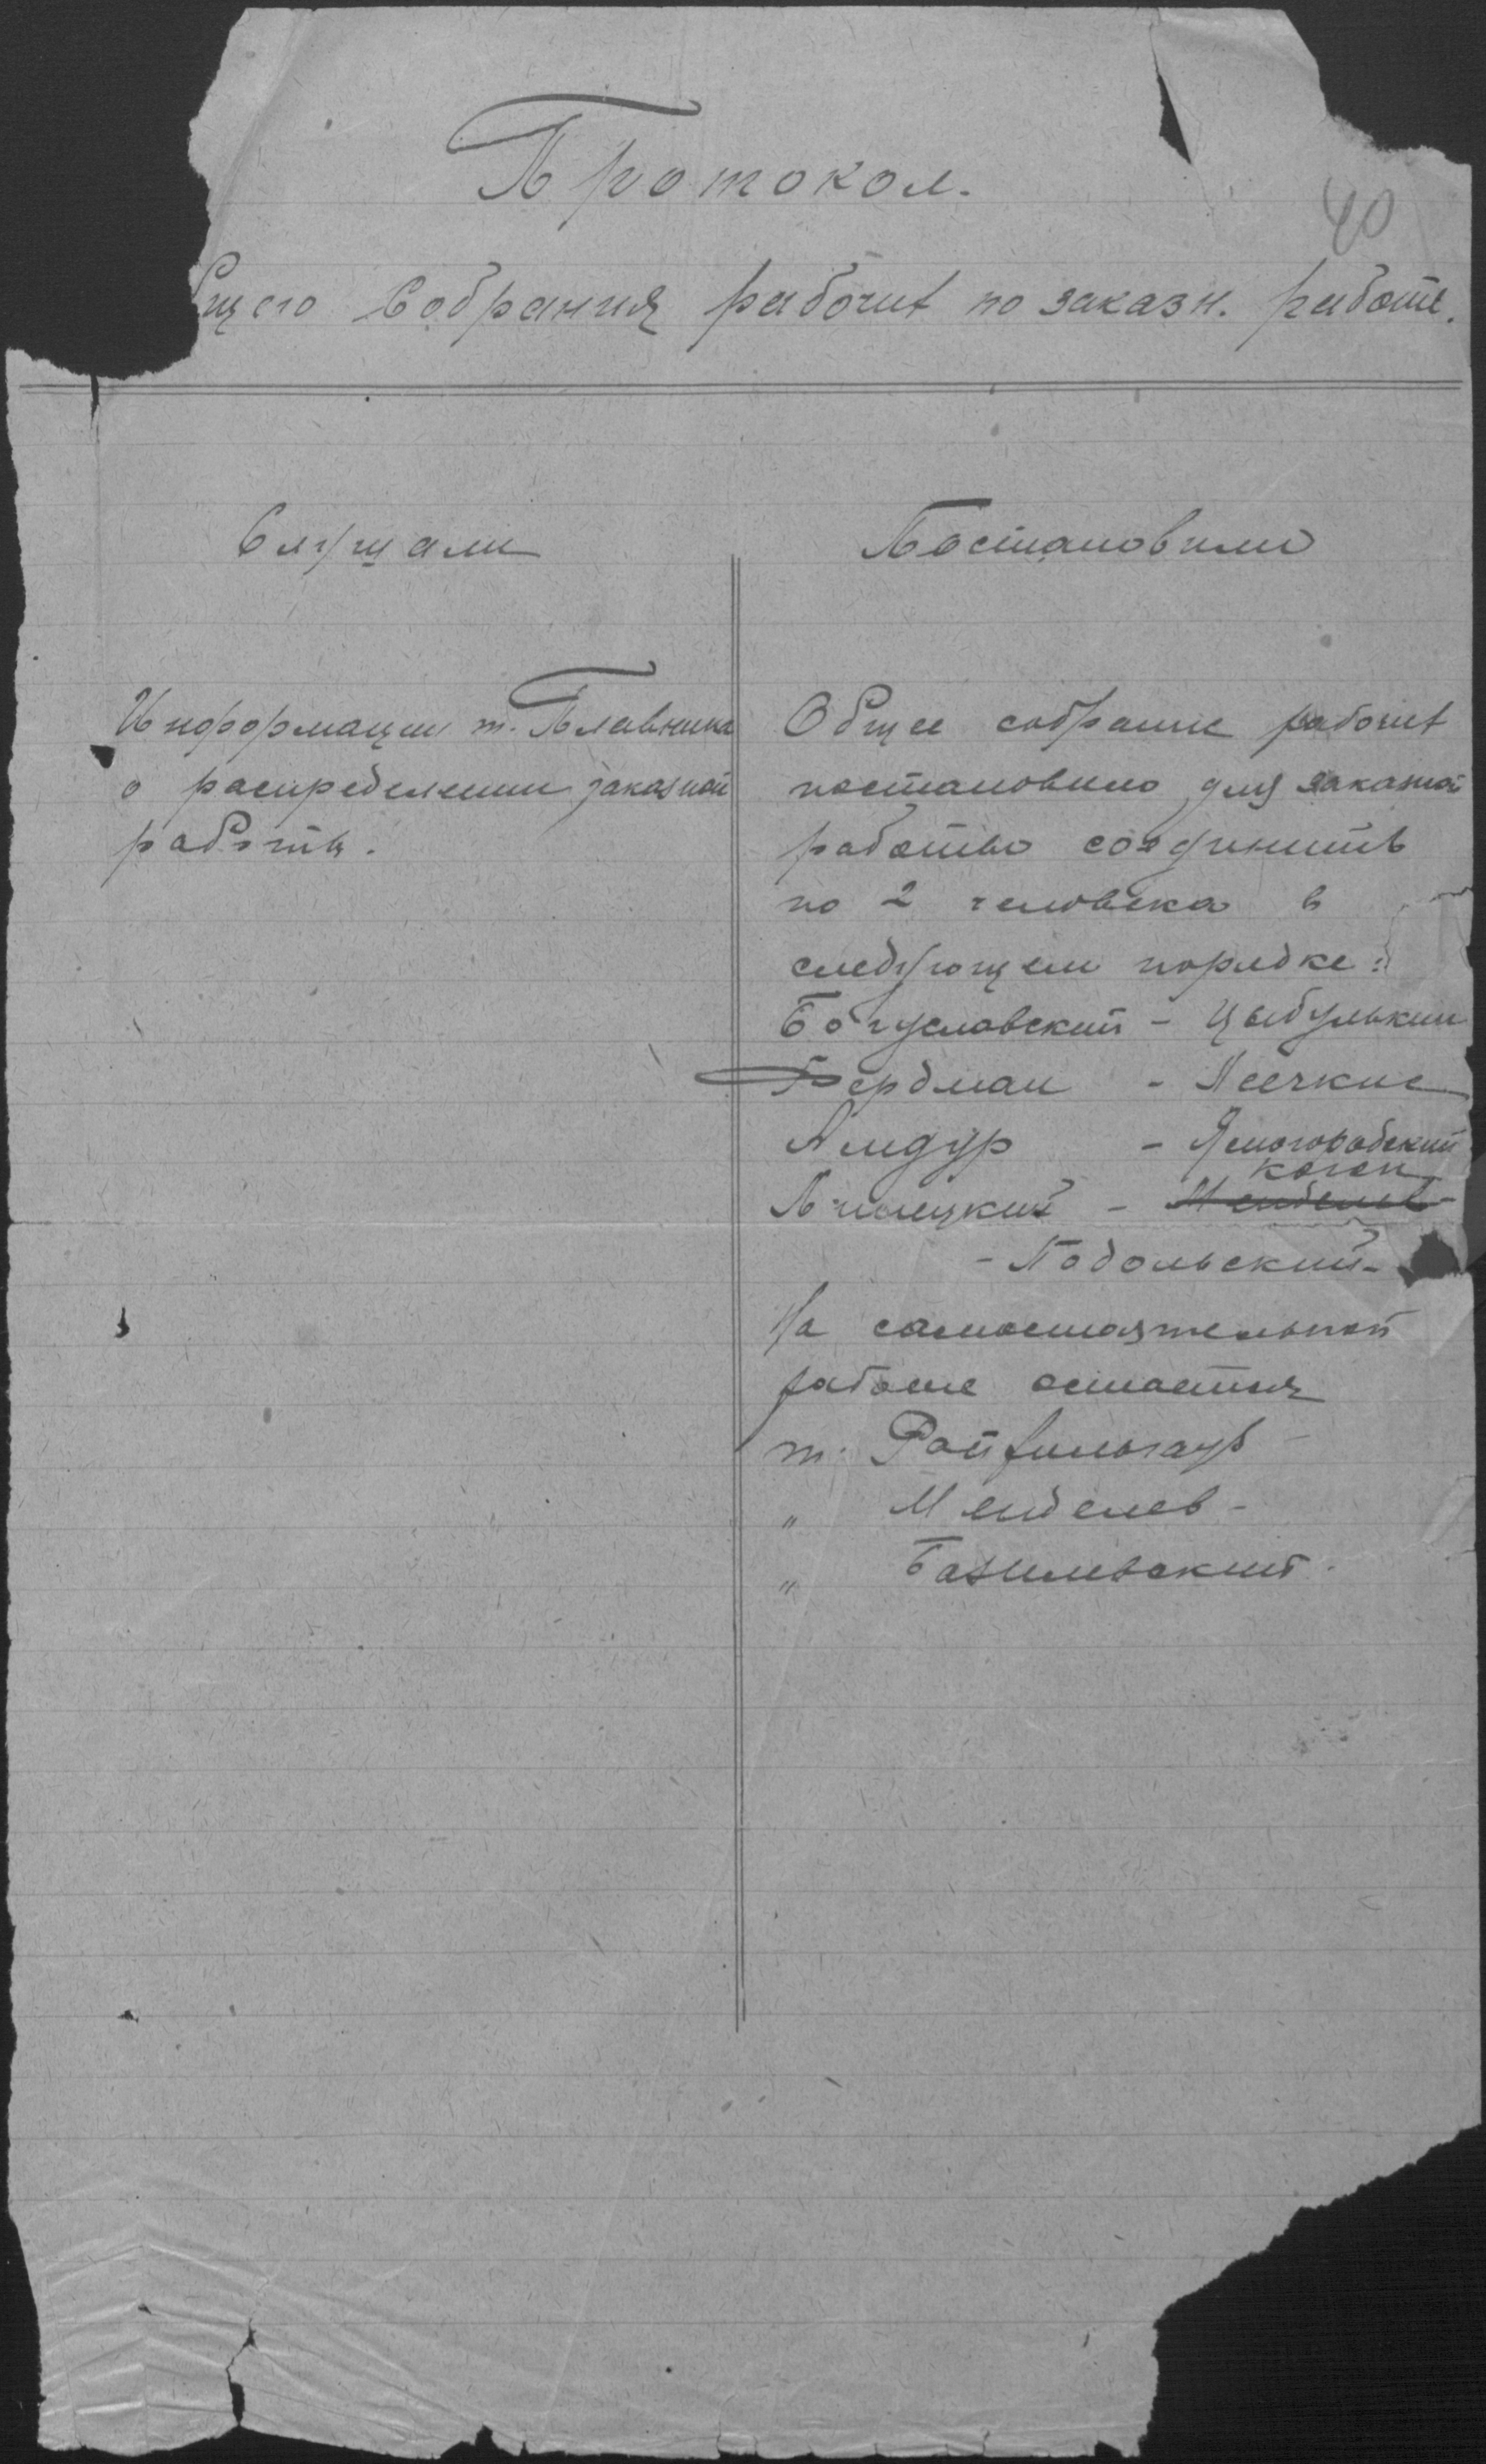 Протокол.
40
бщего Собрания рабочих по заказн. работе.
Слушали
Информации т. Плавника
о распределении заказной
работы.
Постановили
Общее собрание рабочих
постановило для заказной
работы соединить
по 2 человека в
следующем порядке:
Богуславский - Цыбулькин
Бердман -
Амдур - Ясногородский
Коган
Липецкий - Менделев
- Подольский -
На самостоятельной
работе остаются
т. 
" Менделев -
" Базилевский.